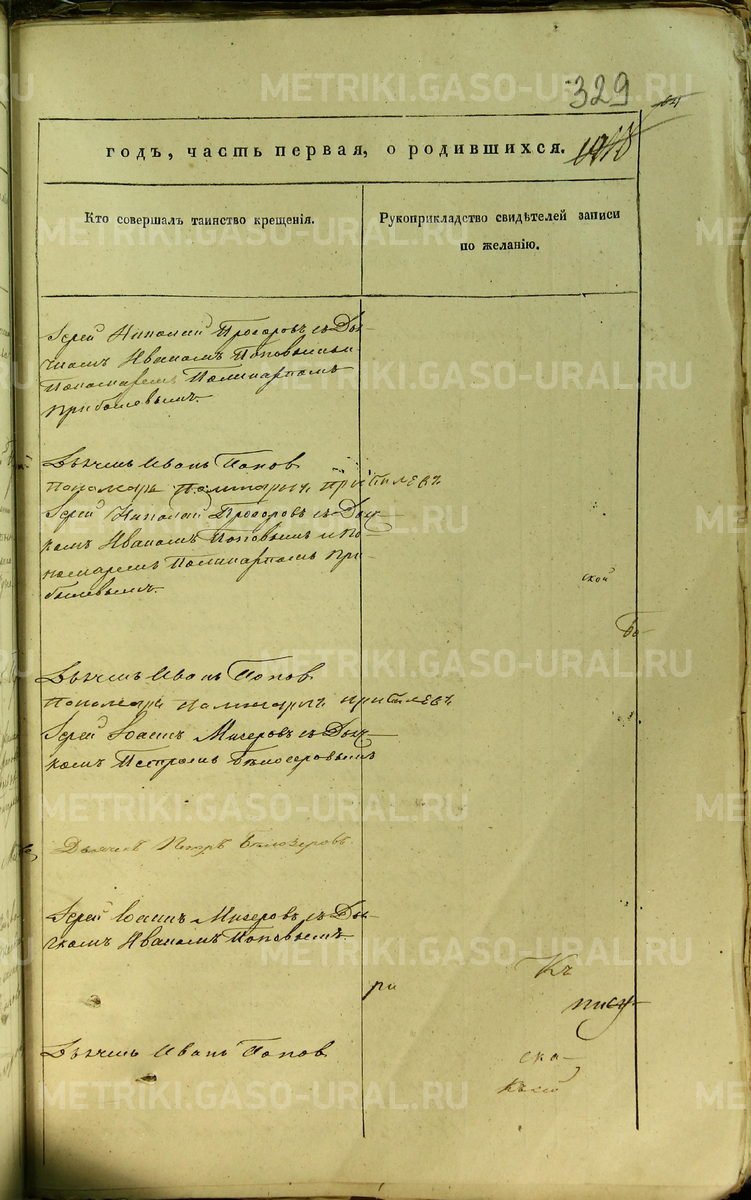 329
годъ, часть первая, о родившихся.
Кто совершалъ таинство крещенія.
Рукоприкладство свидѣтелей записи
по желанію.
Іерей Николай Прозоровъ съ Дья-
чкомъ Иваномъ Поповымъ и
Пономаремъ Поликарпомъ
Прибылевымъ.
Дьячекъ Иванъ Попов
Пономарь Поликарпъ Прибылевъ
Іерей Николай Прозоровъ съ Дьяч-
комъ Иваномъ Поповымъ и По-
номаремъ Поликарпомъ При-
былевымъ.
ской
Бо-
Дьячекъ Иванъ Попов
Пономарь Поликарпъ Прибылевъ
Іерей Іоаннъ Мизеровъ съ Дьяч-
комъ Петромъ Бѣлозеровымъ
Дьячекъ Петръ Бѣлозеровъ.
Іерей Іоаннъ Мизеровъ съ Дья-
чкомъ Иваномъ Поповымъ.
Къ
ри
пису-
Дьячекъ Иванъ Попов
ска-
METRIKI.GASO-URAL.RU